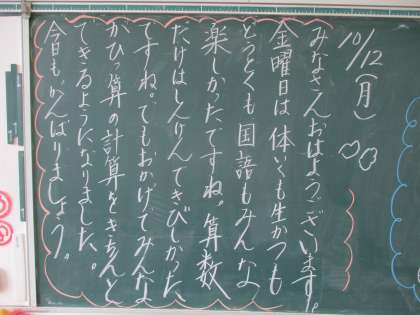 10/12(月)
みなさんおはようございます。
金曜日は体いくも生かつも
どうとくも国語もみんな
楽しかったですね。算数
だけはしんけんできびしかった
ですね。でもおかげでみんな
がひっ算の計算をきちんと
できるようになりました。
今日も、がんばりましょう。